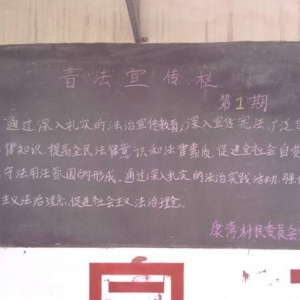 普法宣传栏
第1期
通过深入扎实的法治宣传教育,深入宣传宪法,广泛
律知识,提高全民法律意识和法律素质,促进全社会自觉
守法用法氛围的形成。通过深入扎实的法治实践活动,强
主义法治理念,促进社会主义法治理念.
康湾村民委员会